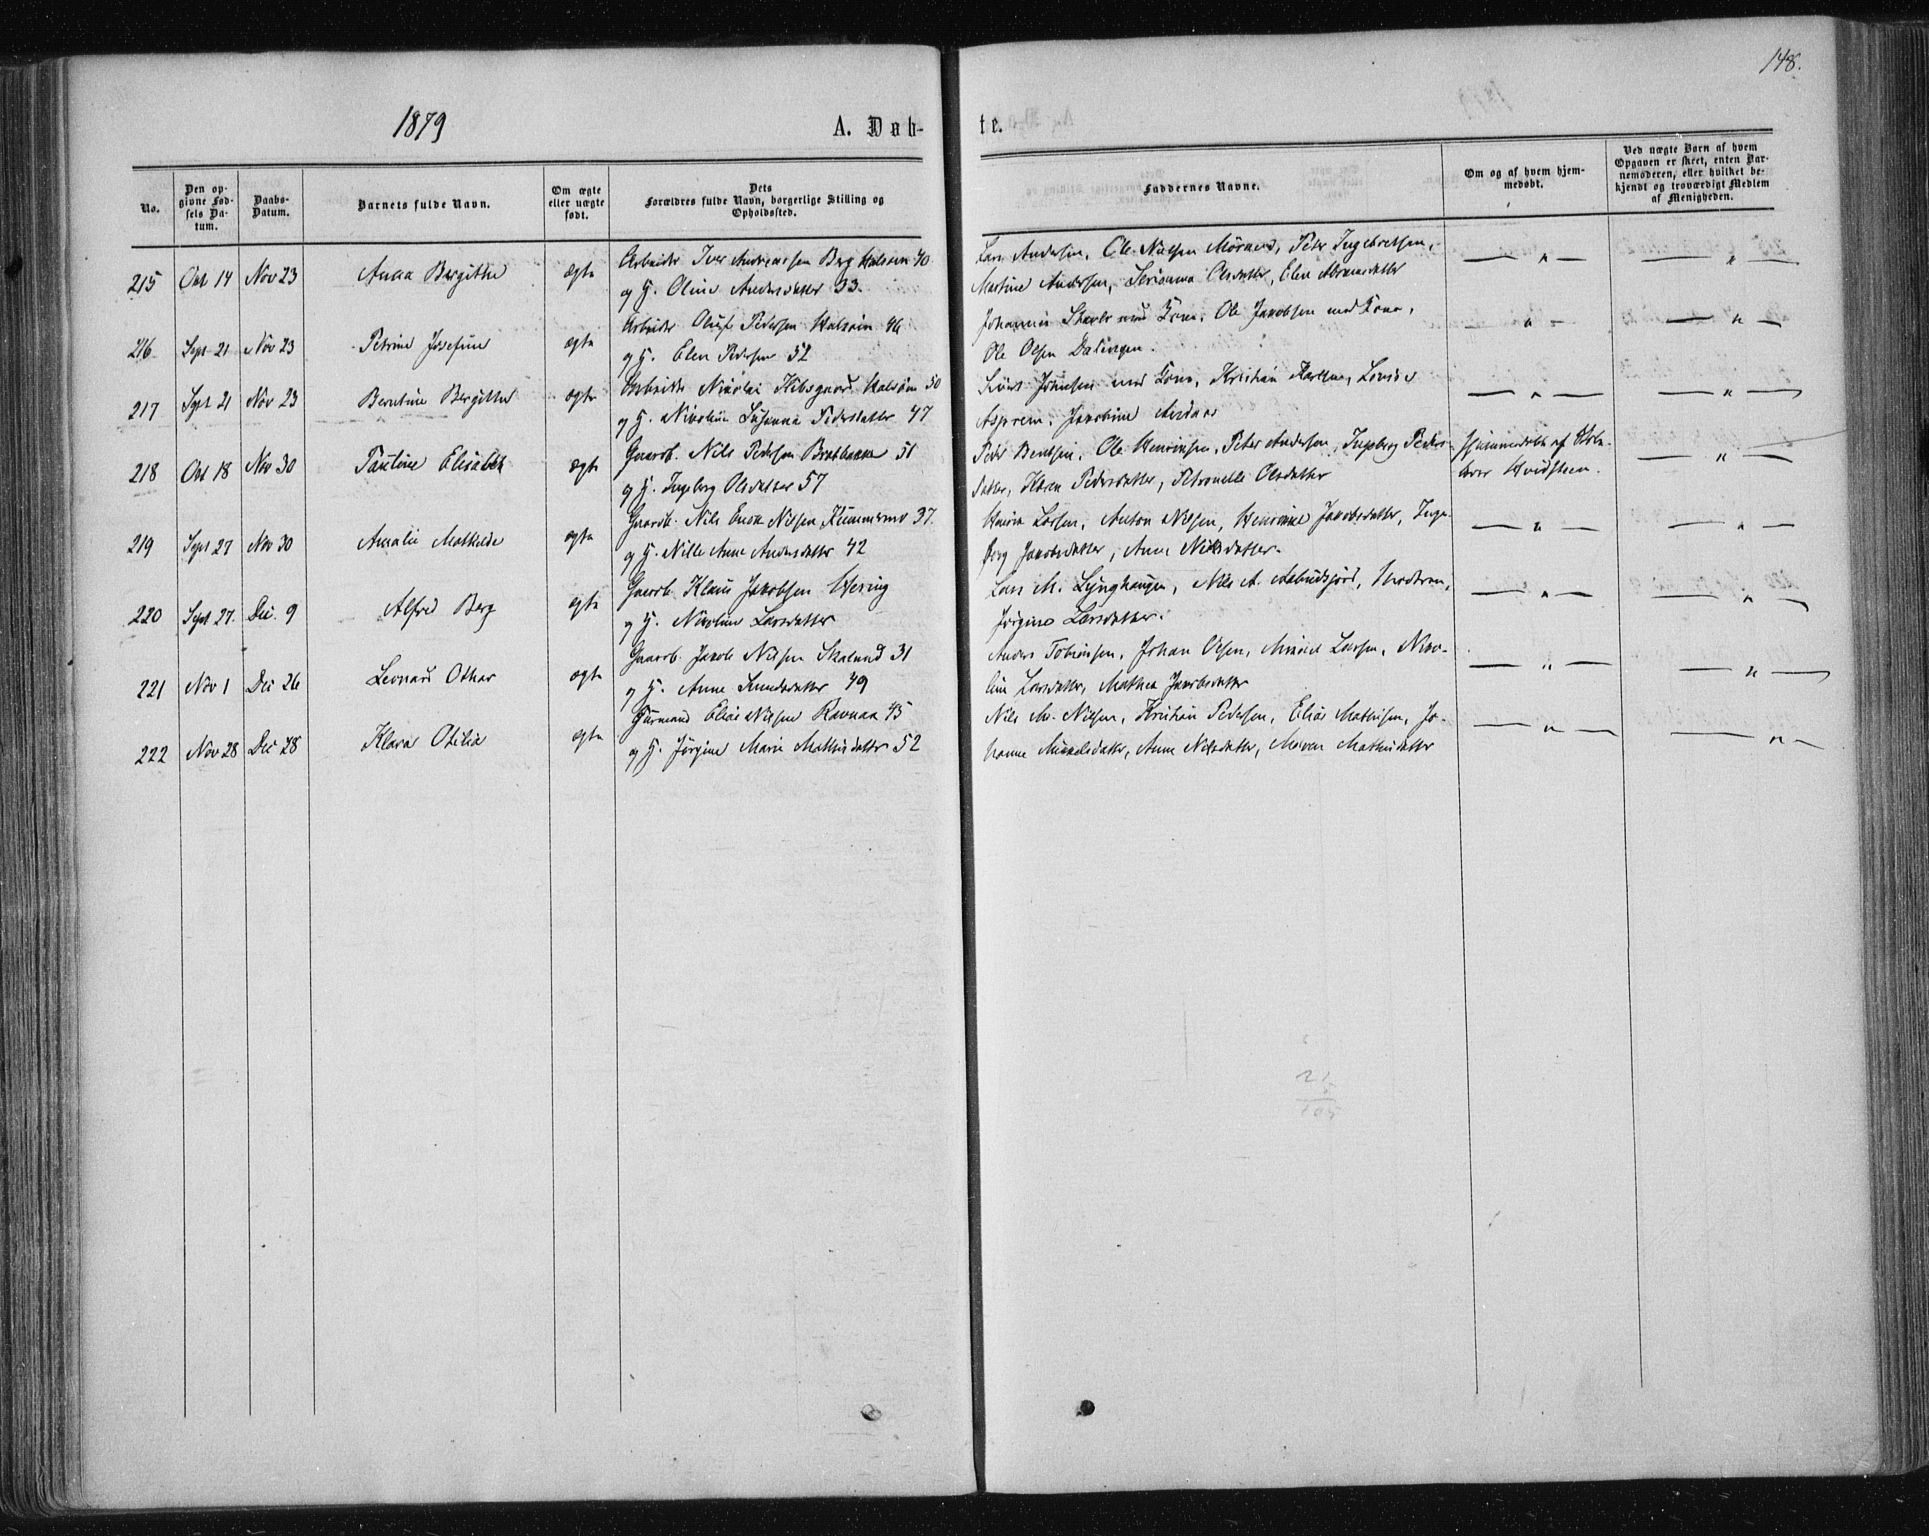 148.
1879
A. Døb-
te.
No.
Den op-
givne Fød-
sels Da-
tum.
Daabs-
Datum.
Barnets fulde Navn.
Om ægte
eller uægte
født.
Dets
Forældres fulde Navn, borgerlige Stilling og
Opholdssted.
Faddernes Navne.
Om og af hvem hjem-
medøbt.
Ved uægte Børn af hvem
Opgaven er skeet, enten Bar-
nemoderen, eller hvilket be-
kjendt og troværdigt Medlem
af Menigheden.
215 Okt 14 Nov 23 Anna Bergithe ægte Arbeider Iver Andreassen Berg Halsøen 40
og H. Oline Andersdatter 33.
Lars Andersen, Ole Nielsen, Peter Ingebretsen,
Martine Andersen, Olsdatter, Elen Abramsdatter
— " — — " —
216 Sept 21 Nov 23 Petrine Josefine ægte Arbeider Oluf Pedersen Halsøen 46
og H. Elen Pedersen 52
Johannes med Kone, Ole Jakobsen med Kone,
Ole Olsen Dalingen.
— " — — " —
217 Sept 21 Nov 23 Berntine Bergitte ægte Arbeider Nikolai Kibsgaard Halsøen 50
og H. Nikoline Susanna Pedersdatter 47
Johnsen med Kone, Kristian Karlsen, Lovise
Jakobine
— " — — " —
218 Okt 18 Nov 30 Pauline Elisabeth ægte Gaardb. Nils Pedersen Bratbakken 51
og H. Ingeborg Olsdatter 57
Peder Berntsen, Ole Henriksen, Peter Andersen, Ingeborg Peders-
datter, Karen Pedersdatter, Petronelle Olsdatter
Hjemmedøbt af
Hvidsteen.
— " —
219 Sept 27 Nov 30 Amalie Mathilde ægte Gaardb. Nils Enok Nilsen 37.
og H. Nille Anne Andersdatter 42
Larsen, Anton Nilsen, Henrikke Jakobsdatter, Inge-
borg Jakobsdatter, Anne Nilsdatter.
— " — — " —
220 Sept 27. Dec. 9 Alfred Berg ægte Gaardb. Klaus Jakobsen Herring
og H. Nikoline Larsdatter
Lars M. Lynghaugen, Nils A. Moderen,
Jørgine Larsdatter.
— " — — " —
221 Nov 1 Dec 26 Leonard Othar ægte Gaardb. Jakob Nilsen 31
og H. Anne Knudsdatter 49
Anders Tobiasen, Johan Olsen, Mikkel Larsen, Niko-
line Larsdatter, Mathea Jakobsdatter
— " — — " —
222 Nov 28 Dec 28 Klara Otilia ægte Gurmand Elias Nilsen Ravnaa 45
og H. Jørgine Marie Mathisdatter 52
Nils M. Nilsen, Kristian Pedersen, Elias Mathisen, Jo-
hanne Mikkelsdatter, Anne Nilsdatter, Maren Mathisdatter
— " — — " —
21
5
105